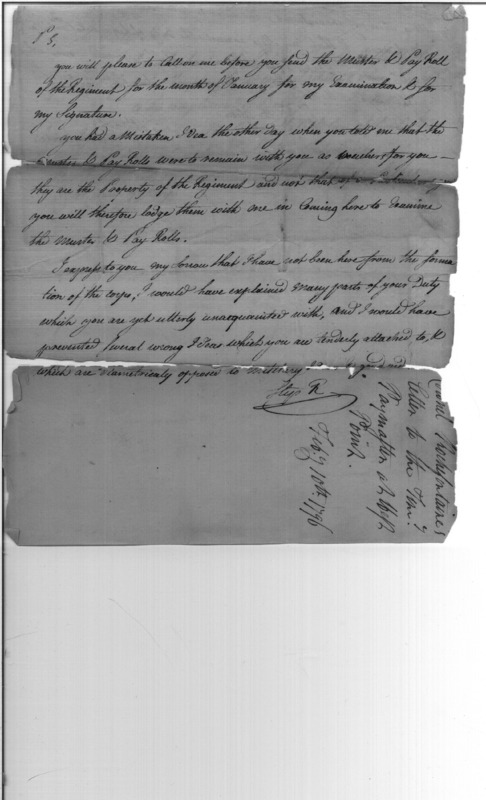 P S,
you will please to Call on me before you send the Muster & Pay Roll
of the Regiment for the month of January for my Examination & for
my Signature.
you had a Mistaken Idea the other day when you told me that the
Muster & Pay Rolls were to remain with you as vouchers for you
they are the Property of the Regiment and not that of
you will therefore lodge them with me in Coming here to Examine
the Muster & Pay Rolls.
I express to you my Sorrow that I have not been here from the forma
tion of the corps, I would have explained many parts of your Duty
which you are yet utterly unacquainted with, and I would have
prevented several wrong Ideas which you are tenderly attached to, &
which are diametrically opposed to
Step R
Rochefontaine's
letter to the
Paymaster at West
Point.
Feby 10th 1796